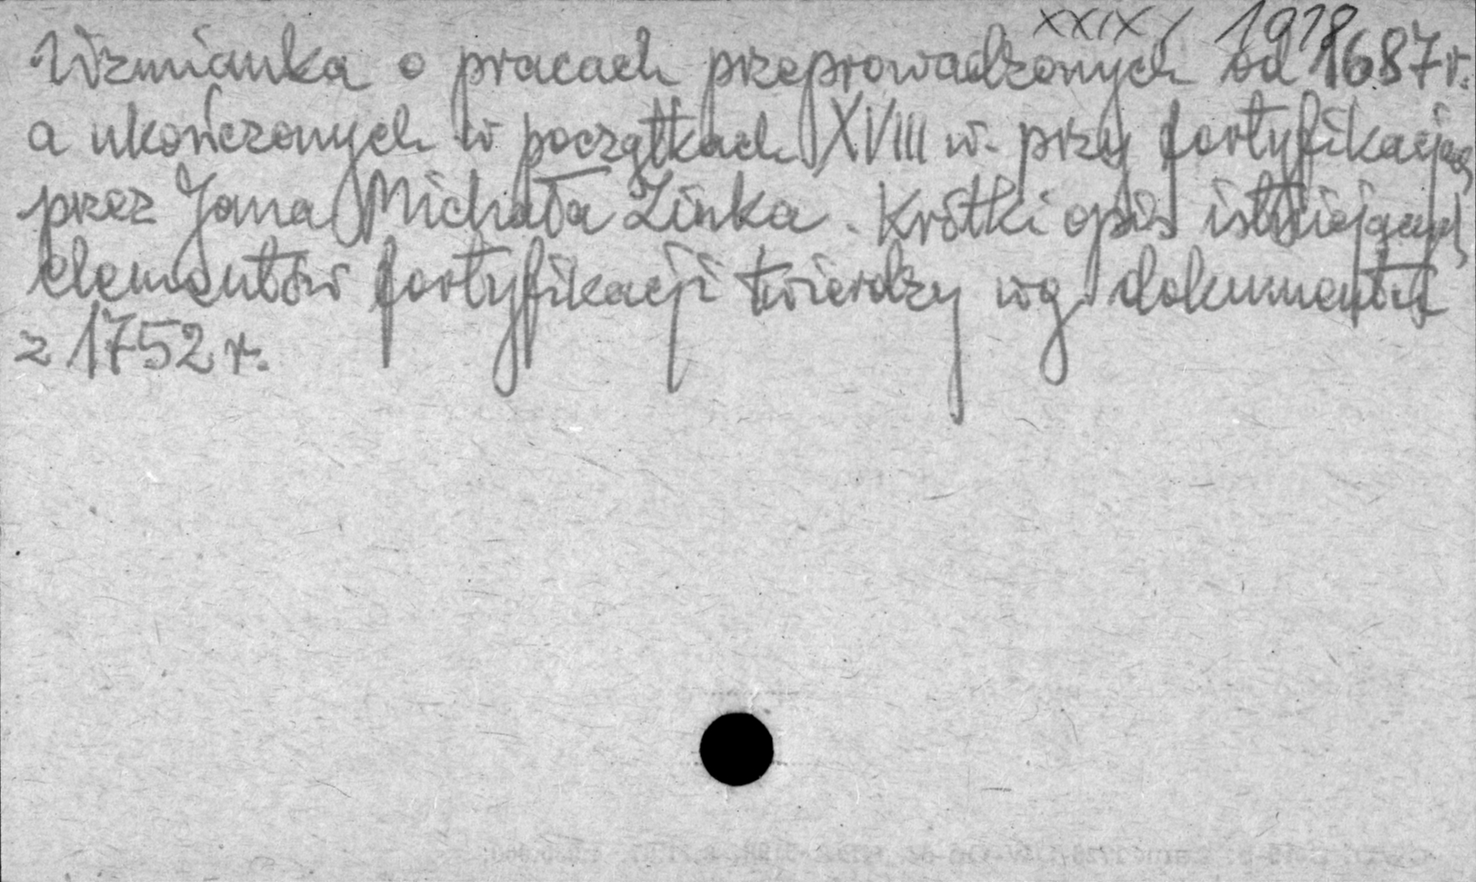 XXIX / 1978
Wzmianka o pracach przeprowadzonych od 1687 r.
a ukończonych w początkach XVIII w. przy fortyfikacjach
przez Jana Michała Linka. Krótki opis istniejących
elementów fortyfikacji twierdzy wg dokumentu
z 1752 r.